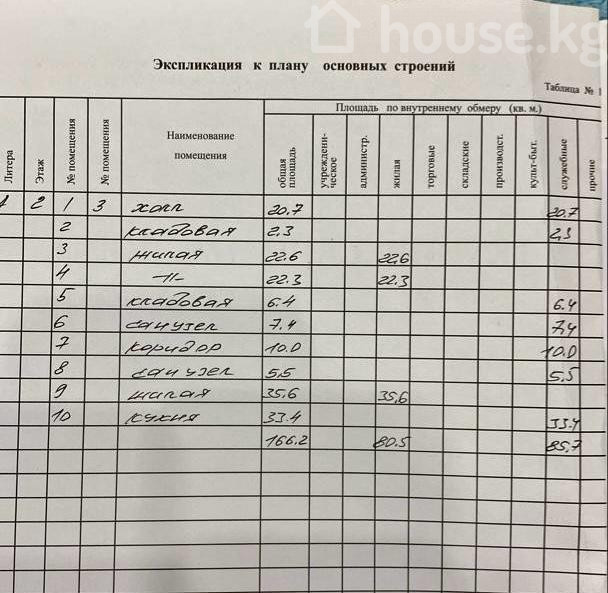 house.kg
Экспликация к плану основных строений
Таблица №
Литера Этаж № помещения № помещения Наименование помещения Площадь по внутреннему обмеру (кв. м.)
общая площадь учреждени-ческое администр. жилая торговые складские производст. культ-быт. служебные прочие
2 1 3 холл 20.7 20.7
2 кладовая 2.3 2,3
3 жилая 22.6 22,6
4 -11- 22.3 22.3
5 кладовая 6.4 6.4
6 санузел 7.4 7,4
7 коридор 10.0 10.0
8 санузел 5,5 5,5
9 жилая 35.6 35,6
10 кухня 33.4 33.4
166.2 80.5 85,7